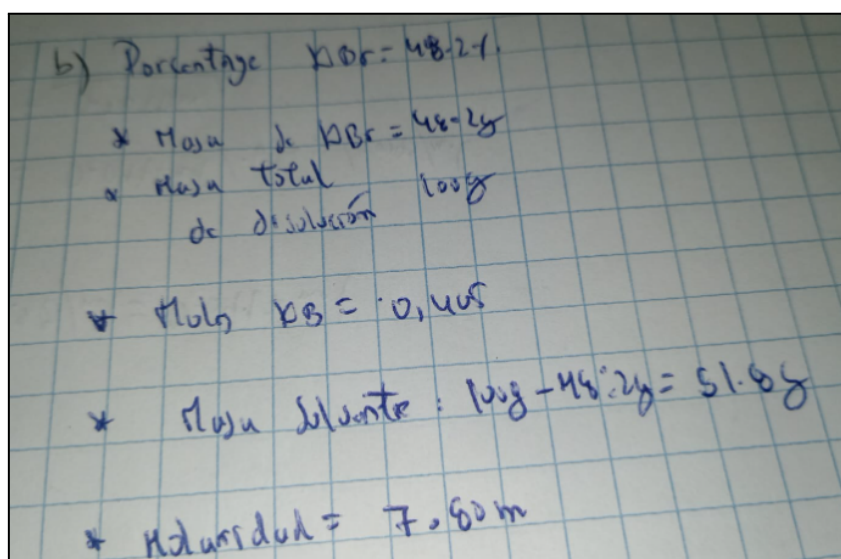 b) Porcentage KBr = 48.2%
* Masa de KBr = 48.2g
* Masa total 100g
de disolución
* Moles KB = 0,405
* Masa Solvente : 100g - 48.2g = 51.8g
* Molaridad = 7.80m